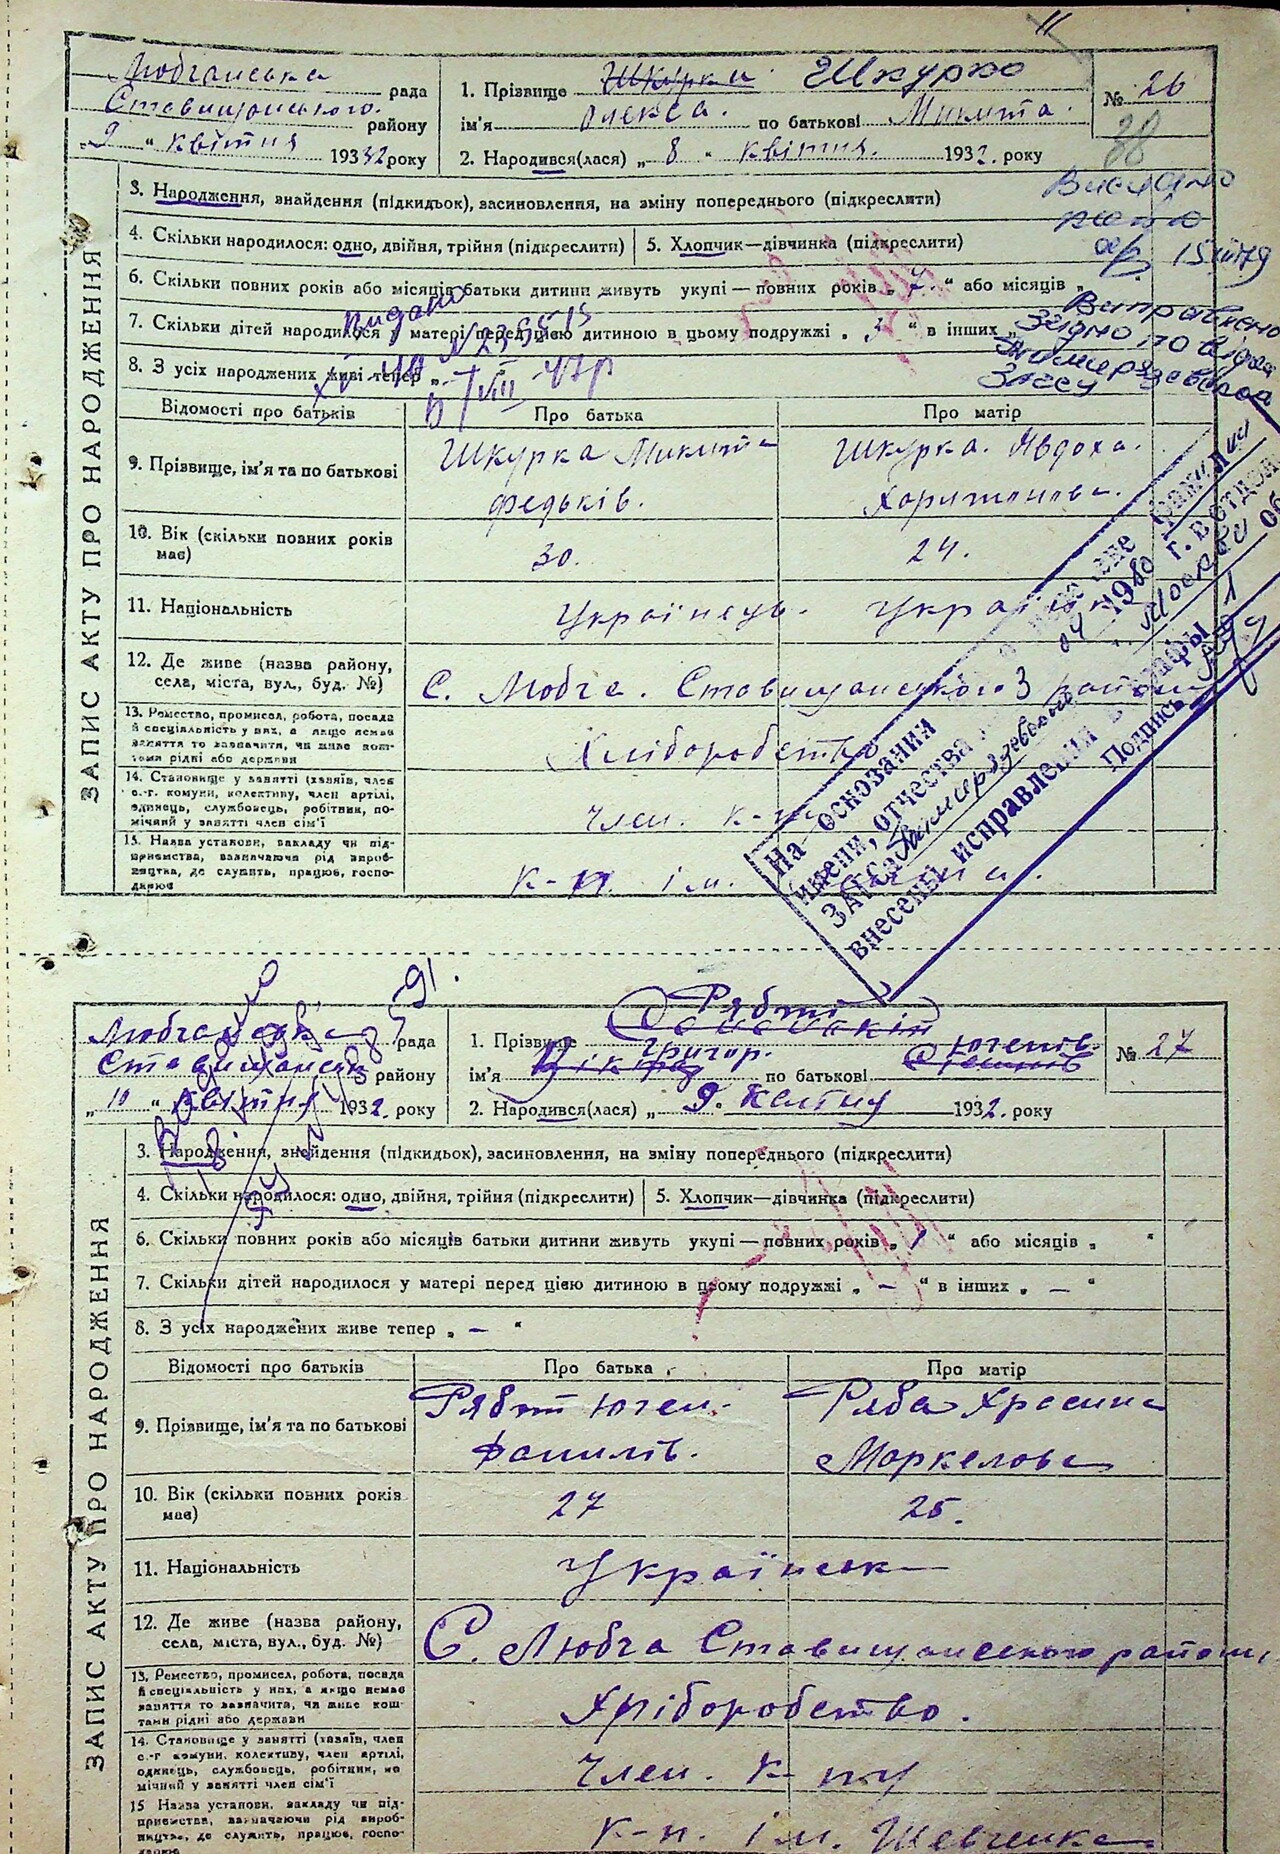 11
Любчанська рада
Ставищанського району
„ 9 “ квітня 1932 року
1. Прізвище Шкурка Шкурко
ім'я Олекса. по батькові Микита.
2. Народився(лася) „ 8 “ квітня. 1932. року
№ 26
38
ЗАПИС АКТУ ПРО НАРОДЖЕННЯ
3. Народження, знайдення (підкидьок), засиновлення, на зміну попереднього (підкреслити)
4. Скільки народилося: одно, двійня, трійня (підкреслити)
5. Хлопчик—дівчинка (підкреслити)
6. Скільки повних років або місяців батьки дитини живуть укупі — повних років „ 7. “ або місяців „
7. Скільки дітей народилося у матері перед цією дитиною в цьому подружжі „ “ в інших „
8. З усіх народжених живі тепер „
видано
VII 47р
15 79
Виправлено
згідно по
Тимирязевской
Загсу
Відомості про батьків
Про батька
Про матір
9. Прізвище, ім'я та по батькові
Шкурка Микита
Федьків.
Шкурка. Явдоха.
Харитонова.
10. Вік (скільки повних років має)
30.
24.
11. Національність
Українець.
12. Де живе (назва району,
села, міста, вул., буд. №)
С. Любча. Ставищанського району
13. Ремество, промисел, робота, посада
й спеціальність у них, а якщо немає
заняття то зазначити, чи живе кош-
тами рідні або держави
Хліборобство
14. Становище у занятті (хазяїн, член
с.-г. комуни, колективу, член артілі,
одинець, службовець, робітник, по-
мічний у занятті член сім'ї
Член. к-пу
15. Назва установи, закладу чи під-
приємства, вазначаючи рід вироб-
ництва, де служить, працює, госпо-
дарює
к-п. ім.
На основании о перемене фамилии
имени, отчества 04 1980 г. в отделе
ЗАГСа Тимирязевском Москвы
внесены исправления в графы 1
Подпись
91.
Любчанська рада
Ставищанськ району
„ 10 “ квітня 1932. року
1. Прізвище Рябті
ім'я Григор. по батькові Югенів.
2. Народився(лася) „ 9. Квітня 1932. року
№ 27
ЗАПИС АКТУ ПРО НАРОДЖЕННЯ
3. Народження, знайдення (підкидьок), засиновлення, на зміну попереднього (підкреслити)
4. Скільки народилося: одно, двійня, трійня (підкреслити)
5. Хлопчик—дівчинка (підкреслити)
6. Скільки повних років або місяців батьки дитини живуть укупі — повних років „ 1 “ або місяців „ “
7. Скільки дітей народилося у матері перед цією дитиною в цьому подружжі „ — “ в інших „ — “
8. З усіх народжених живе тепер „ — “
Відомості про батьків
Про батька
Про матір
9. Прізвище, ім'я та по батькові
Рябт Юген.
Данилів.
Ряба Хрестина
Маркелова
10. Вік (скільки повних років має)
27
25.
11. Національність
Українськ
12. Де живе (назва району,
села, міста, вул., буд. №)
С. Любча Ставищанського району
13. Ремество, промисел, робота, посада
й спеціальність у них, а якщо немає
заняття то зазначита, чи живе кош-
тами рідні або держави
Хліборобство.
14. Становище у занятті (хазяїн, член
с.-г комуни, колективу, член артілі,
одинець, службовець, робітник, по
мічний у занятті член сім'ї
Член. к-пу
15 Назва установи, закладу чи під-
приємства, вазначаючи рід вироб-
ництва, де служить, працює, госпо-
дарює
к-п. ім. Шевченка